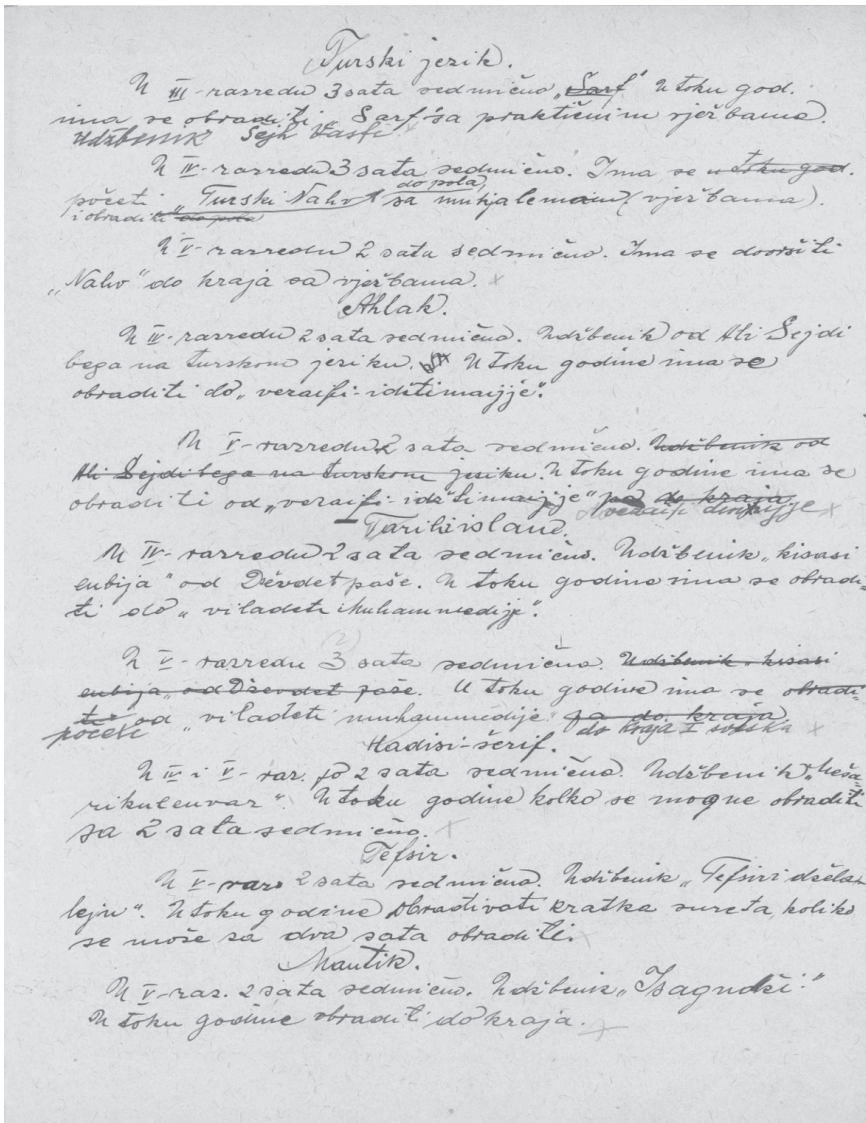 Turski jezik.
U III-razredu 3 sata sedmično „Sarf" U toku god.
ima se obraditi „Sarf" sa praktičnim vježbama.
Udžbenik Šejh Vasfi
U IV-razredu 3 sata sedmično. Ima se u toku god.
početi „Turski Nahv" do pola, sa mukjalemom (vježbama).
i obraditi do pola
U V-razredu 2 sata sedmično. Ima se dovršiti
„Nahv" do kraja sa vježbama. x
Ahlak.
U IV-razredu 2 sata sedmično. Udžbenik od Ali Sejdi
bega na turskom jeziku. U toku godine ima se
obraditi do „vezaifi-idžtimaijje".
U V-razredu 2 sata sedmično. Udžbenik od
Ali Sejdi bega na turskom jeziku. U toku godine ima se
obraditi od „vezaifi-idžtimaijje" pa do kraja
vezaifi x
Tarihi islam.
U IV-razredu 2 sata sedmično. Udžbenik „kisasi
enbija" od Dževdet paše. U toku godine ima se obradi-
ti do „viladeti Muhammedije".
(2)
U V-razredu 3 sata sedmično. Udžbenik „kisasi
enbija" od Dževdet paše. U toku godine ima se obradi-
ti od „viladeti muhammedije" pa do kraja
početi do kraja I x
Hadisi-šerif.
U IV i V-raz. po 2 sata sedmično. Udžbenik „Meša-
rikulenvar". U toku godine kolko se mogne obraditi
sa 2 sata sedmično. x
Tefsir.
U V-raz 2 sata sedmično. Udžbenik „Tefsiri džela-
lejn". U toku godine obrađivati kratka sureta, koliko
se može sa dva sata obraditi. x
Mantik.
U V-raz. 2 sata sedmično. Udžbenik „Isagudži."
U toku godine obraditi do kraja. x